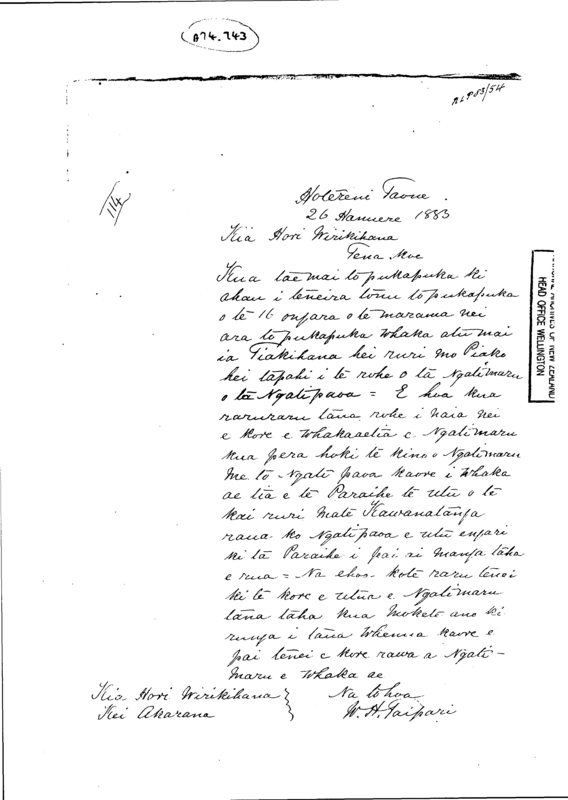 A74.743
NLP83/54
114
Hotereni Taone.
26 Hanuere 1883
Kia Hori Wirikihana
Tena Koe
Kua tae mai to pukapuka ki
ahau i teneira tonu to pukapuka
o te 16 ongara o te marama nei
ara to pukapuka whaka atu mai
ia Tiakihana hei ruri mo Piako
hei tapahi i te rohe o ta Ngatimaru
o ta Ngatipaoa = E hoa kua
raruraru tana rohe i naia nei
e kore e whakaaetia e Ngatimaru
kua pera hoki te kino o Ngatimaru
me to Ngati paoa kaore i whaka
ae tia e te Paraihe te utu o te
kai ruri mate Kawanatanga
raua ko Ngatipaoa e utu engari
ki ta Paraihe i pai ai manga taha
e rua = Na ehoa kote raru tenei
ki te kore e utua e Ngatimaru
tana taha kua moketo ano ki
runga i tana whenua kaore e
pai tenei e kore rawa a Ngati-
maru e whaka ae
Kia Hori Wirikihana
Kei Akarana
Na to hoa
W. H. Taipari
NATIONAL ARCHIVES OF NEW ZEALAND
HEAD OFFICE WELLINGTON